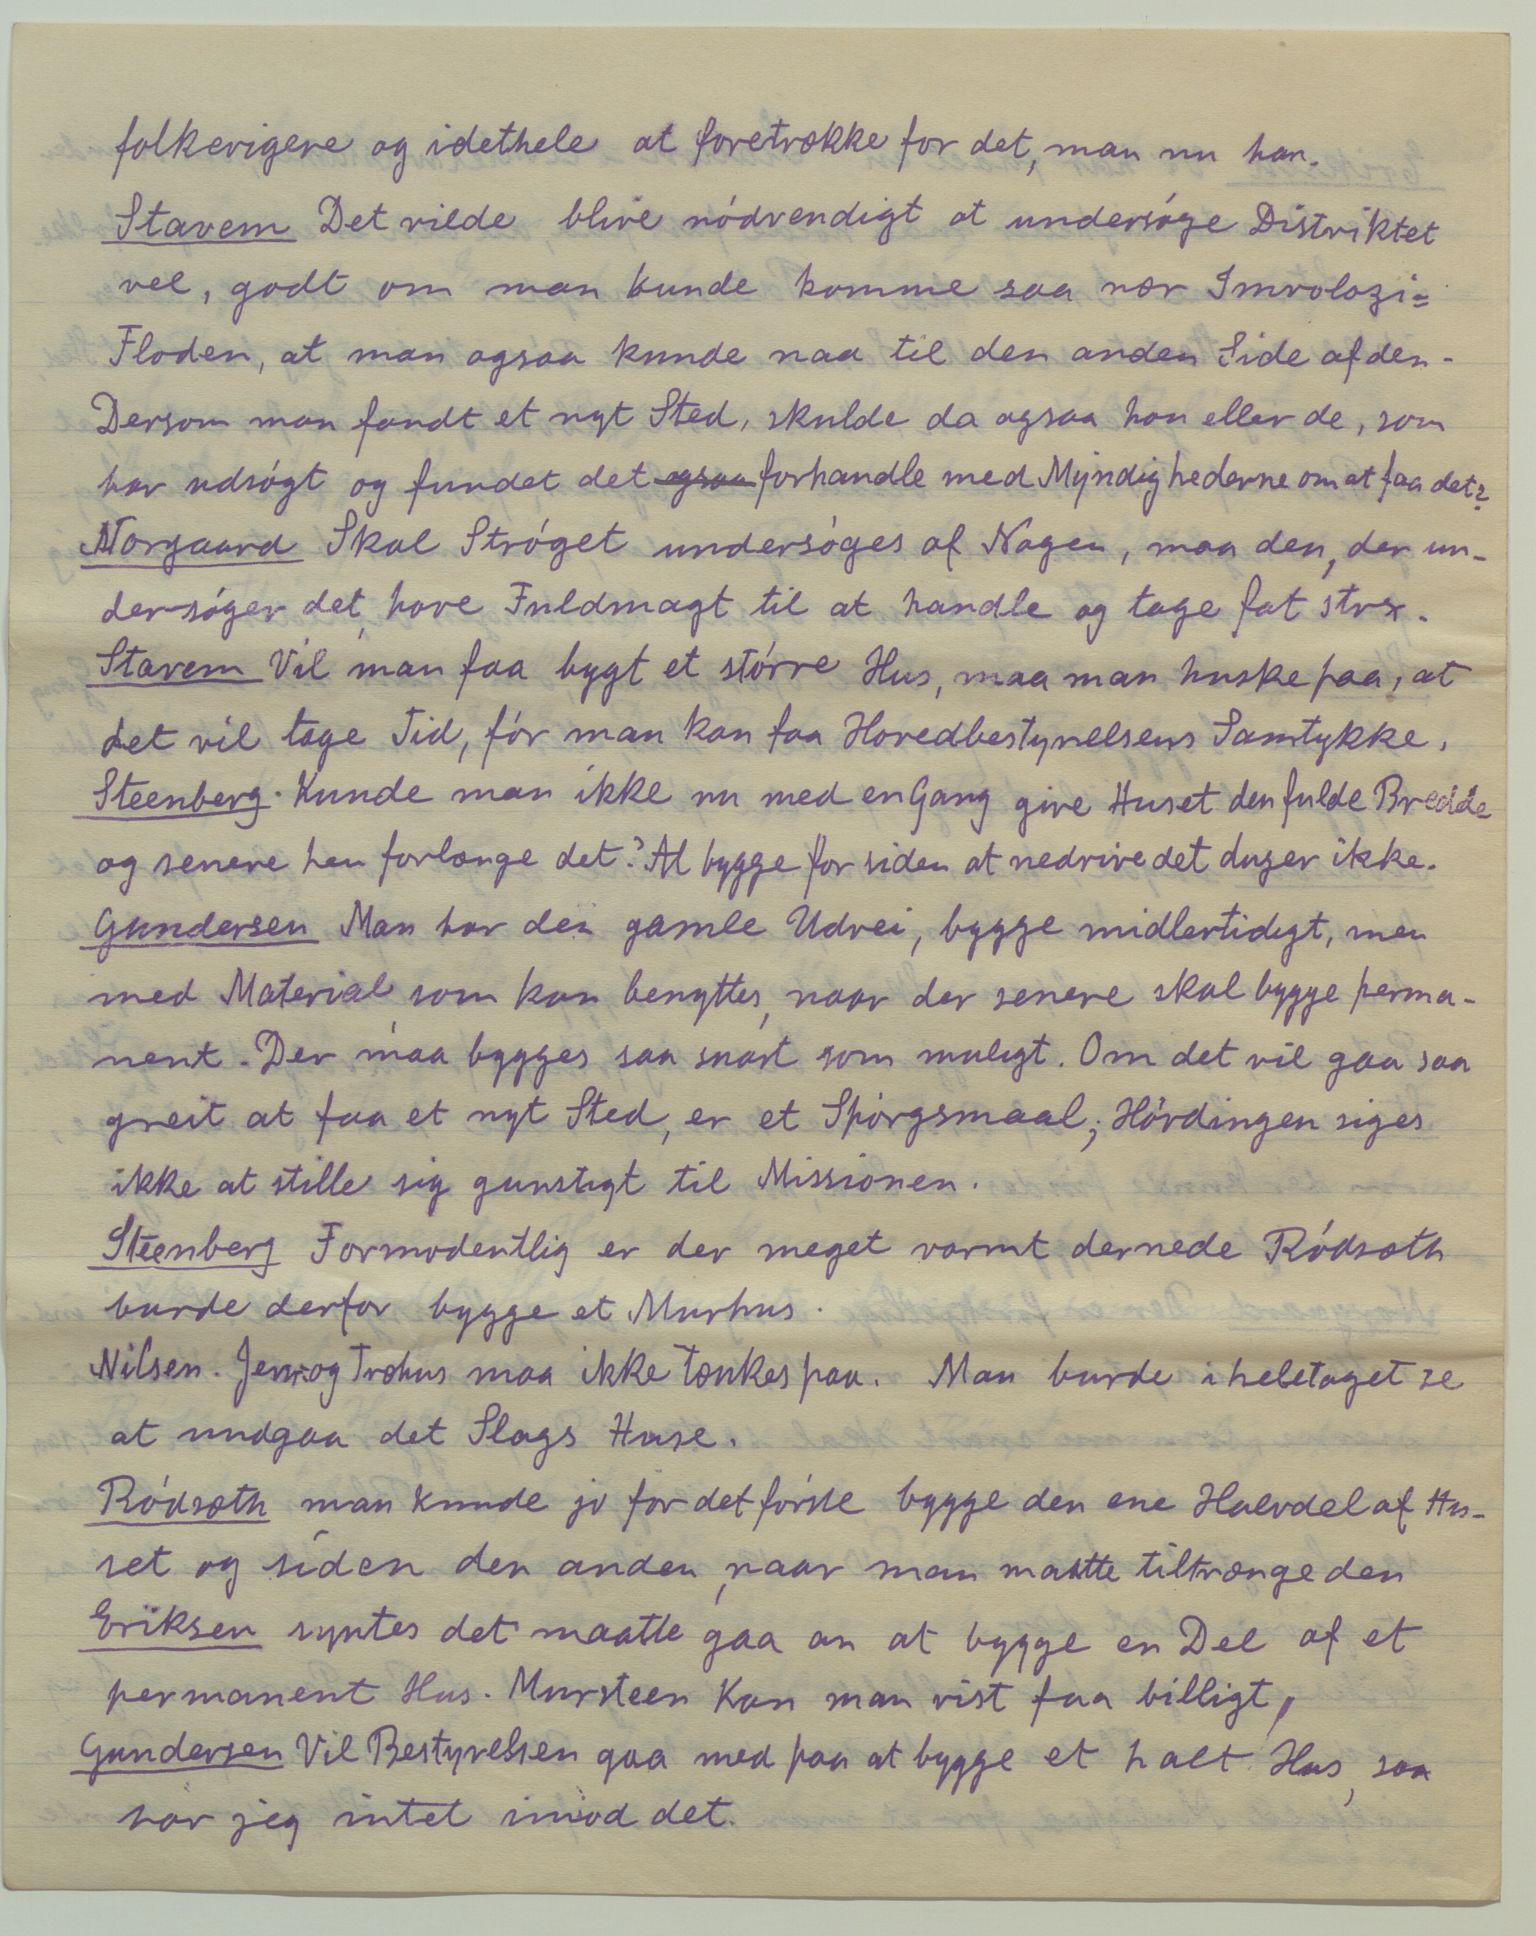 folkerigere og idethele at foretrække for det, man nu har.
Stavem Det vilde blive nódvendigt at undersóge Distriktet
vel, godt om man kunde komme saa nær Imvolozi=
Floden, at man ogsaa kunde naa til den anden Side af den.
Dersom man fandt et nyt Sted, skulde da ogsaa han eller de, som
har udsógt og fundet det ogsaa forhandle med Myndighederne om at faa det?
Norgaard Skal Stróget undersóges af Nogen, maa den, der un-
dersóger det, have Fuldmagt til at handle og tage fat strx.
Stavem Vil man faa bygt et stórre Hus, maa man huske paa, at
det vil tage Tid, fór man kan faa Hovedbestyrelsens Samtykke.
Steenberg. Kunde man ikke nu med en Gang give Huset den fulde Bredde
og senere hen forlænge det? At bygge for siden at nedrive det duger ikke.
Gundersen Man har den gamle Udvei, bygge midlertidigt, men
med Material som kan benyttes, naar der senere skal bygge perma-
nent. Der maa bygges saa snart som muligt. Om det vil gaa saa
greit at faa et nyt Sted, er et Spórgsmaal; Hóvdingen siges
ikke at stille sig gunstigt til Missionen.
Steenberg Formodentlig er der meget varmt dernede Ródsæth
burde derfor bygge et Murhus.
Nilsen. Jern og Træhus maa ikke tænkes paa. Man burde i heletaget se
at undgaa det Slags Huse.
Ródsæth man kunde jo for det fórste bygge den ene Halvdel af Hu-
set og siden den anden, naar man maatte tiltrænge den
Eriksen syntes det maatte gaa an at bygge en Del af et
permanent Hus. Mursteen kan man vist faa billigt,
Gundersen Vil Bestyrelsen gaa med paa at bygge et halt Hus, saa
har jeg intet imod det.